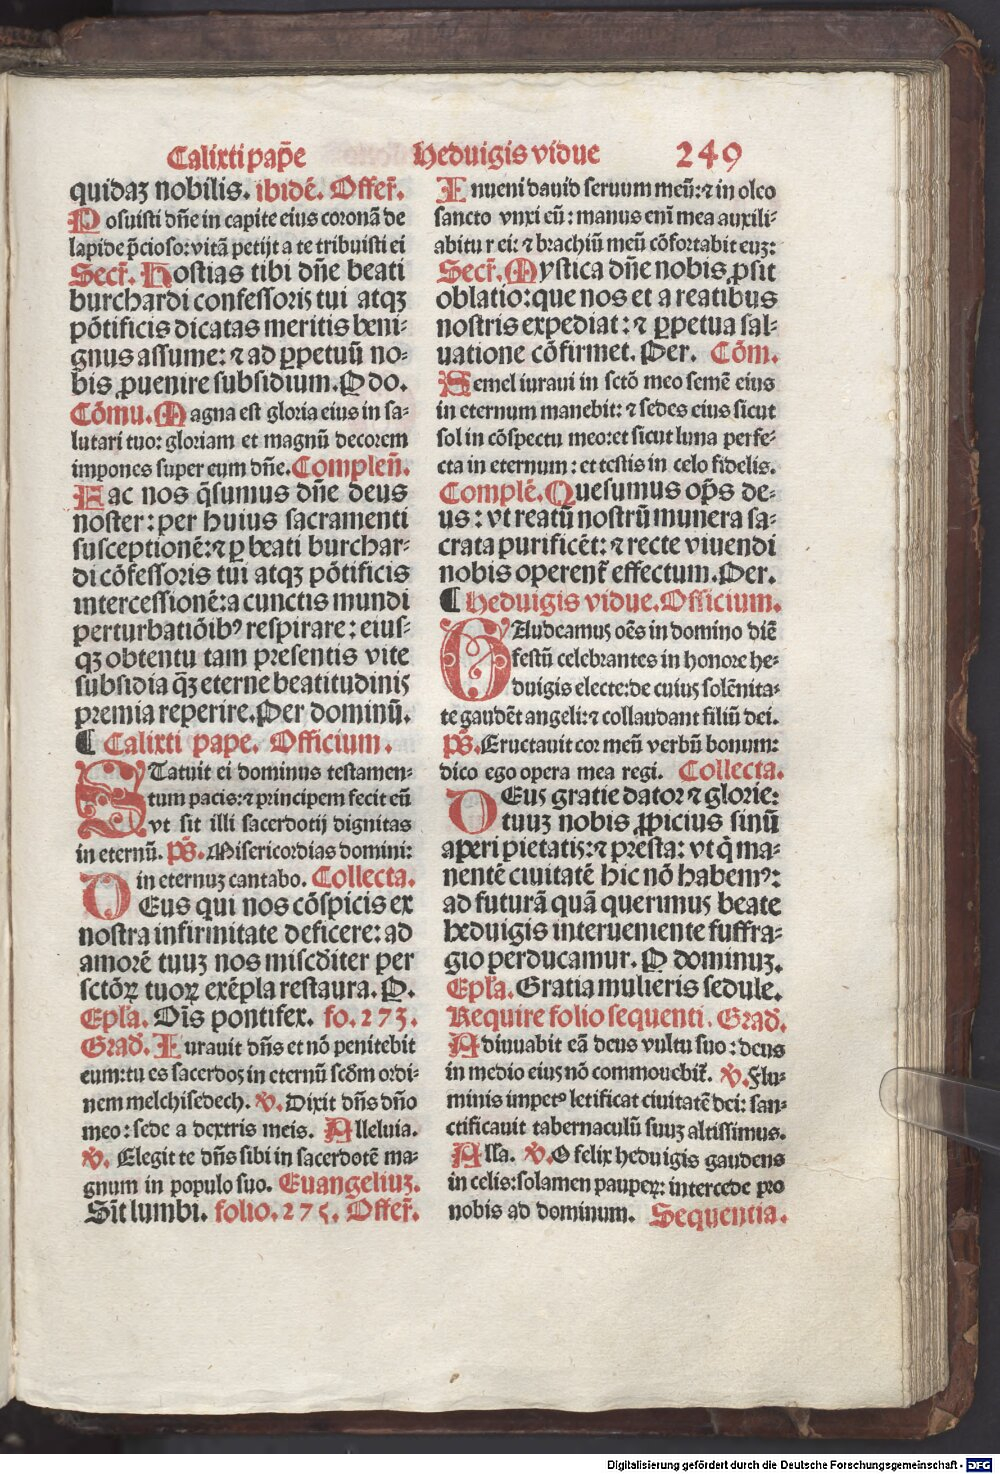 Calixti pap̃e Heduigis vidue 249
quidaʒ nobilis. ibidē. Offer̃.
Posuisti dñe in capite eius coronā de
lapide p̃cioso: vitā petijt a te tribuisti ei
Secr̃. Hostias tibi dñe beati
burchardi confessoris tui atqʒ
pōtificis dicatas meritis beni⸗
gnus assume: ⁊ ad ꝑpetuū no⸗
bis ꝓuenire subsidium. P do.
Cōmu. Magna est gloria eius in sa⸗
lutari tuo: gloriam et magnū decorem
impones super eum dñe. Compleñ.
Fac nos q̄sumus dñe deus
noster: per huius sacramenti
susceptionē: ⁊ ꝑ beati burchar⸗
di cōfessoris tui atqʒ pōtificis
intercessionē: a cunctis mundi
perturbatiōibꝰ respirare: eius⸗
qʒ obtentu tam presentis vite
subsidia q̄ʒ eterne beatitudinis
premia reperire. Per dominū.
¶ Calixti pape. Officium.
STatuit ei dominus testamen⸗
tum pacis: ⁊ principem fecit eū
vt sit illi sacerdotij dignitas
in eternū. ps̄. Misericordias domini:
in eternuʒ cantabo. Collecta.
DEus qui nos cōspicis ex
nostra infirmitate deficere: ad
amorē tuuʒ nos misc̄diter per
sctōꝝ tuoꝝ exēpla restaura. P.
Epl̃a. Oīs pontifex. fo. 273.
Grad̃. Iurauit dñs et nō penitebit
eum: tu es sacerdos in eternū scd̄m ordi⸗
nem melchisedech. ℣. Dixit dñs dño
meo: sede a dextris meis. Alleluia.
℣. Elegit te dñs sibi in sacerdotē ma⸗
gnum in populo suo. Euangeliuʒ.
Sīt lumbi. folio. 275. Offer̃.
Inueni dauid seruum meū: ⁊ in oleo
sancto vnxi eū: manus enī mea auxili⸗
abitur ei: ⁊ brachiū meū cōfortabit euʒ:
Secr̃. Mystica dñe nobis ꝓsit
oblatio: que nos et a reatibus
nostris expediat: ⁊ ꝑpetua sal⸗
uatione cōfirmet. Per. Cōm.
Semel iuraui in sctō meo semē eius
in eternum manebit: ⁊ sedes eius sicut
sol in cōspectu meo: et sicut luna perfe⸗
cta in eternum: et testis in celo fidelis.
Complē. Quesumus op̄s de⸗
us: vt reatū nostrū munera sa⸗
crata purificēt: ⁊ recte viuendi
nobis operent̃ effectum. Per.
¶ Heduigis vidue. Officium.
GAudeamus oēs in domino diē
festū celebrantes in honore he⸗
duigis electe: de cuius solēnita⸗
te gaudēt angeli: ⁊ collaudant filiū dei.
ps̄. Eructauit cor meū verbū bonum:
dico ego opera mea regi. Collecta.
DEus gratie dator ⁊ glorie:
tuuʒ nobis ꝓpicius sinū
aperi pietatis: ⁊ presta: vt q̄ ma⸗
nentē ciuitatē hic nō habemꝰ:
ad futurā quā querimus beate
heduigis interueniente suffra⸗
gio perducamur. P dominuʒ.
Epl̃a. Gratia mulieris sedule.
Require folio sequenti. Grad̃.
Adiuuabit eā deus vultu suo: deus
in medio eius nō commouebit̃. ℣. Flu⸗
minis impetꝰ letificat ciuitatē dei: san⸗
ctificauit tabernaculū suuʒ altissimus.
Alla. ℣. O felix heduigis gaudens
in celis: solamen pauperꝝ: intercede pro
nobis ad dominum. Sequentia.
Digitalisierung gefördert durch die Deutsche Forschungsgemeinschaft - DFG